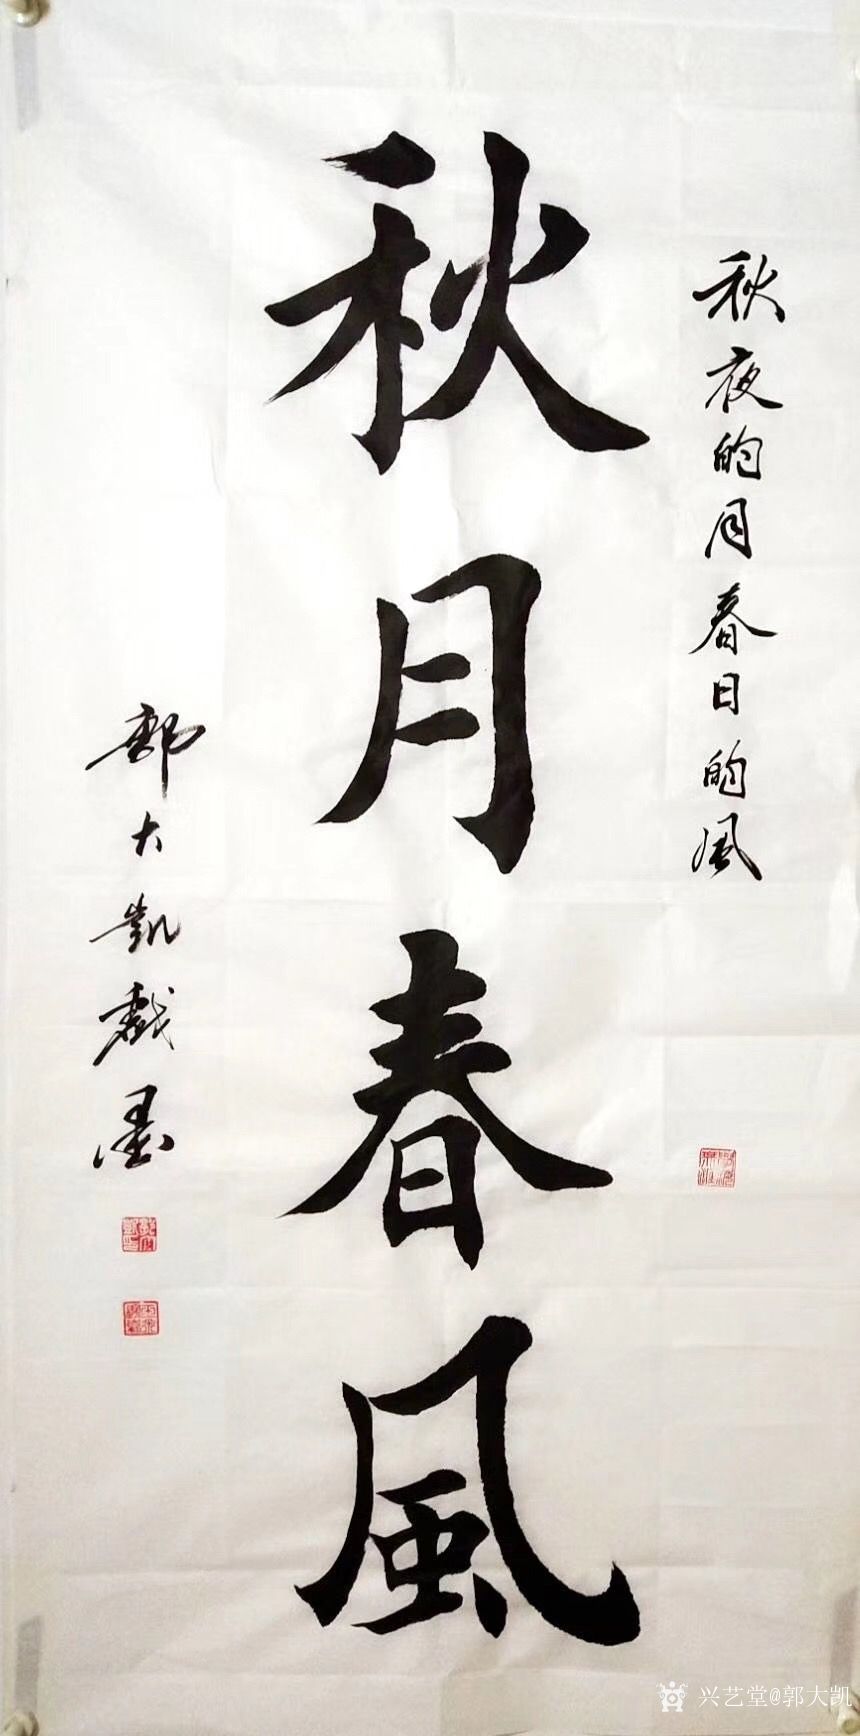 秋夜的月春日的风
秋月春風
郭大凯戏墨
兴艺堂@郭大凯